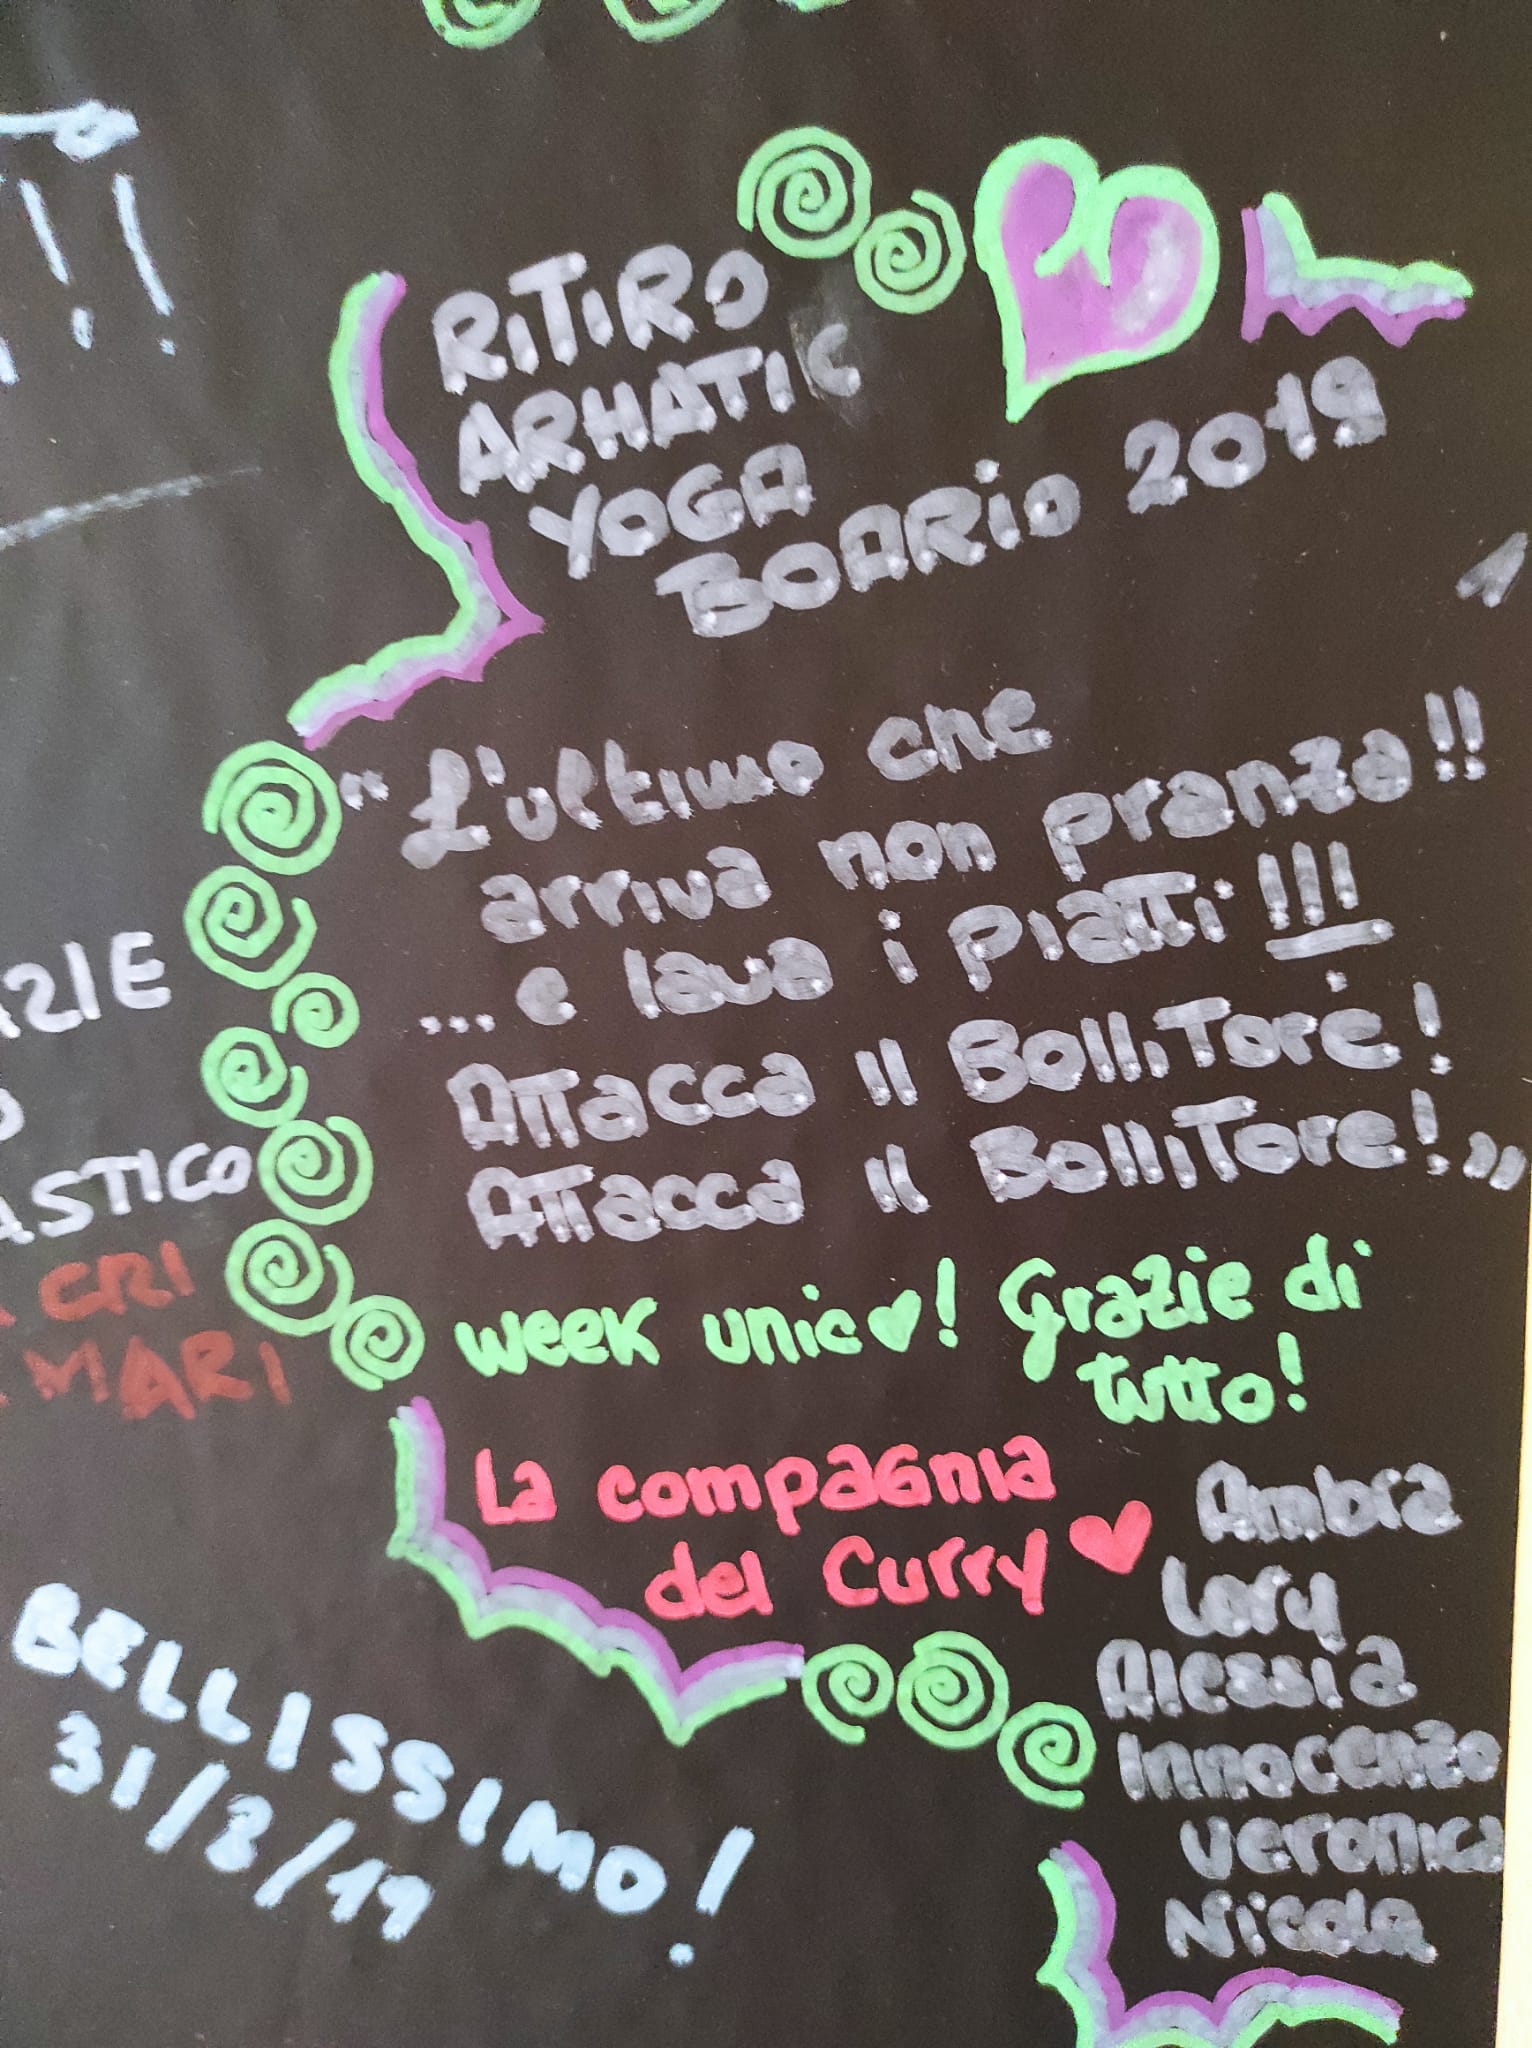 !!
RiTiRO
ARHATIC
YOGA
BOARiO 2019
"L'ultimo che
arriva non pranza!!
... e lava i piatti!!!
Attacca il Bollitore!
Attacca il Bollitore!"
week unico! Grazie di
tutto!
La compagnia
del Curry
Ambra
Lory
Alessia
Innocenzo
veronica
Nicola
AZIE
ASTICO
CRI
MARI
BELLISSIMO!
31/8/19